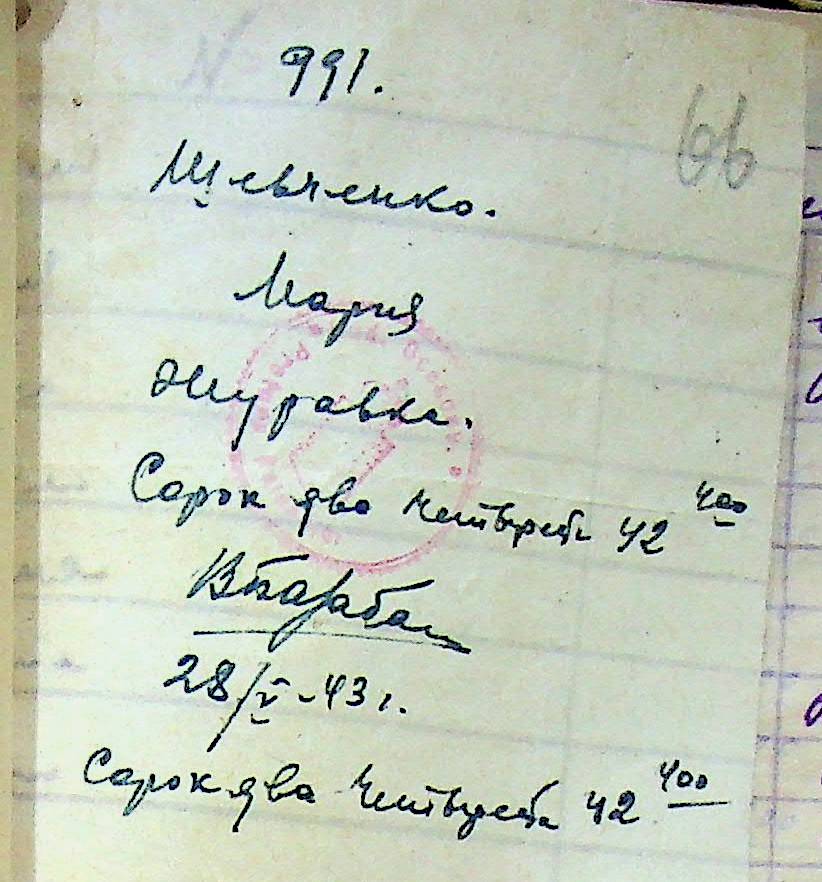 991.
66
Шевченко.
Мария
Журавка.
Сорок два четыреста 42 400
28/V-43 г.
Сорок два четыреста 42 400